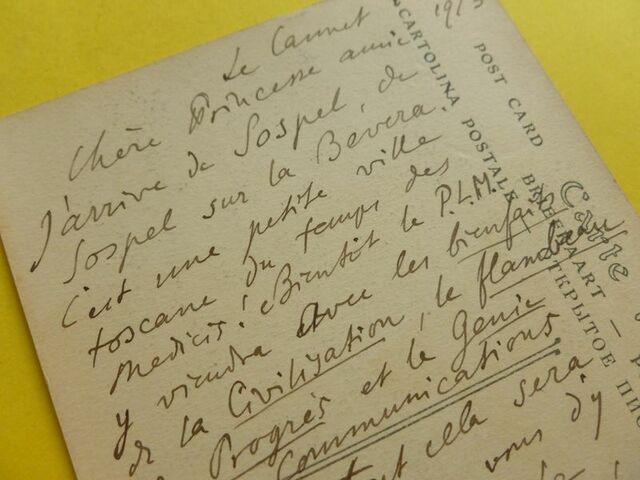 Le Cannet 191
Chère Princesse amie
J'arrive de Sospel, de
Sospel sur la Bévera.
C'est une petite ville
toscane du temps des
Medicis! Bientôt le P.L.M.
y viendra avec les bienfaits
de la Civilisation, le flambeau
Progrès et le Génie
Communications
cela sera
vous d'y
Carte
CARTOLINA POSTALE
POST CARD
ОТКРЫТОЕ